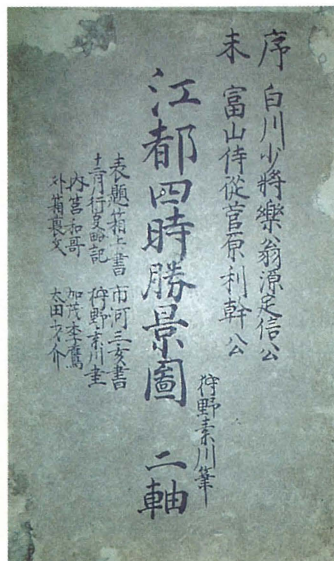 序 白川少將樂翁源定信公
末 富山侍從菅原利幹公
江都四時勝景圖 二軸
狩野素川筆
表題箱上書 市河三亥書
十二月行叓略記 狩野素川画
内筥和哥 加茂季鷹
外箱裏文